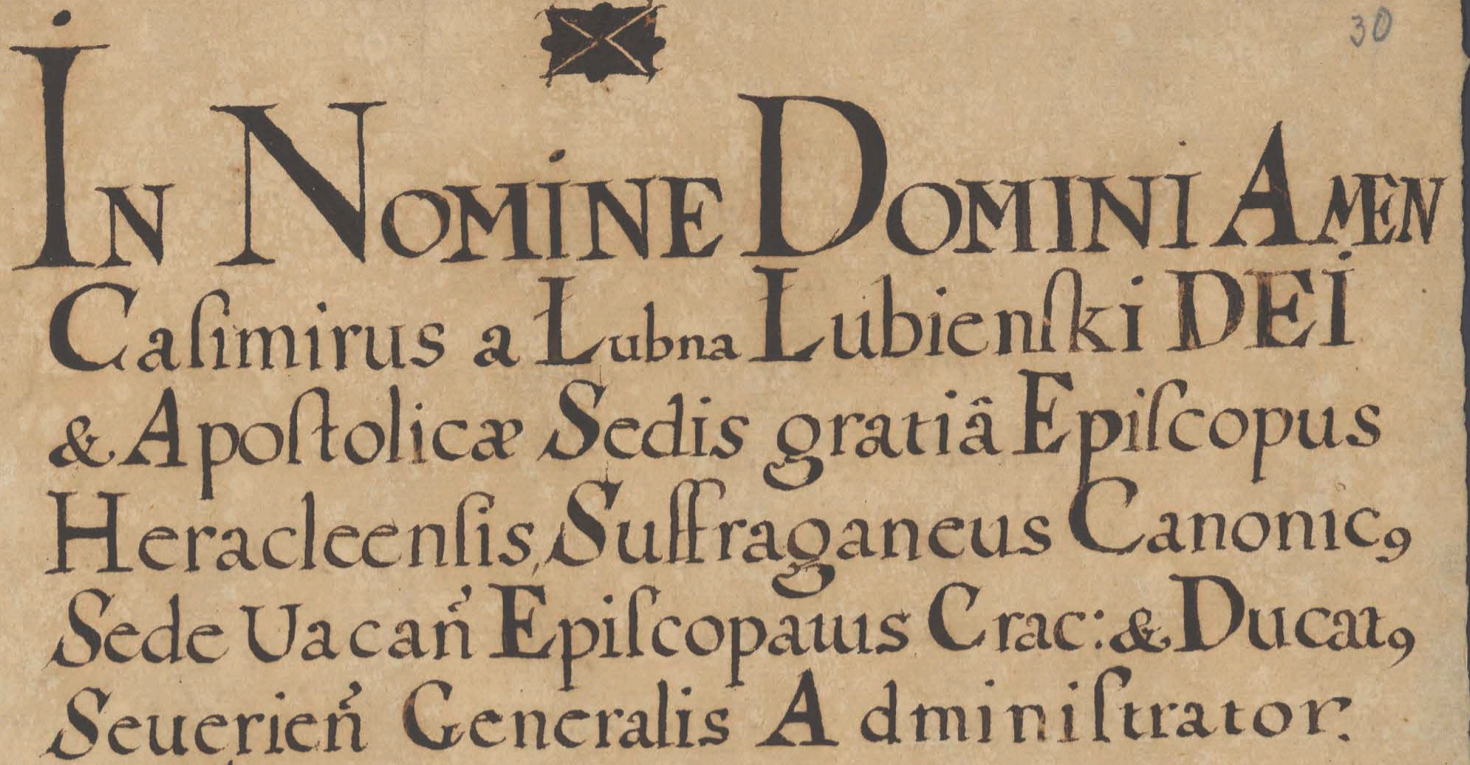 30
IN NOMINE DOMINI AMEN
Caſimirus a Lubna Lubienſki DEI
& Apoſtolicæ Sedis gratiâ Epiſcopus
Heracleenſis, Suffraganeus Canonicꝯ
Sede Uacan̉ Epiſcopatus Crac: & Ducatꝯ
Seuerien̉ Generalis Adminiſtrator.